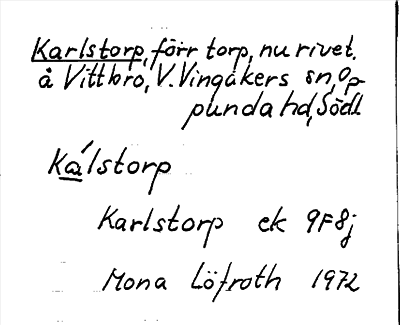 Karlstorp, förr torp, nu rivet.
å Vittbro, V. Vingåkers sn, Op-
punda hd, Södl
Ka´lstorp
Karlstorp ek 9F8j
Mona Löfroth 1972